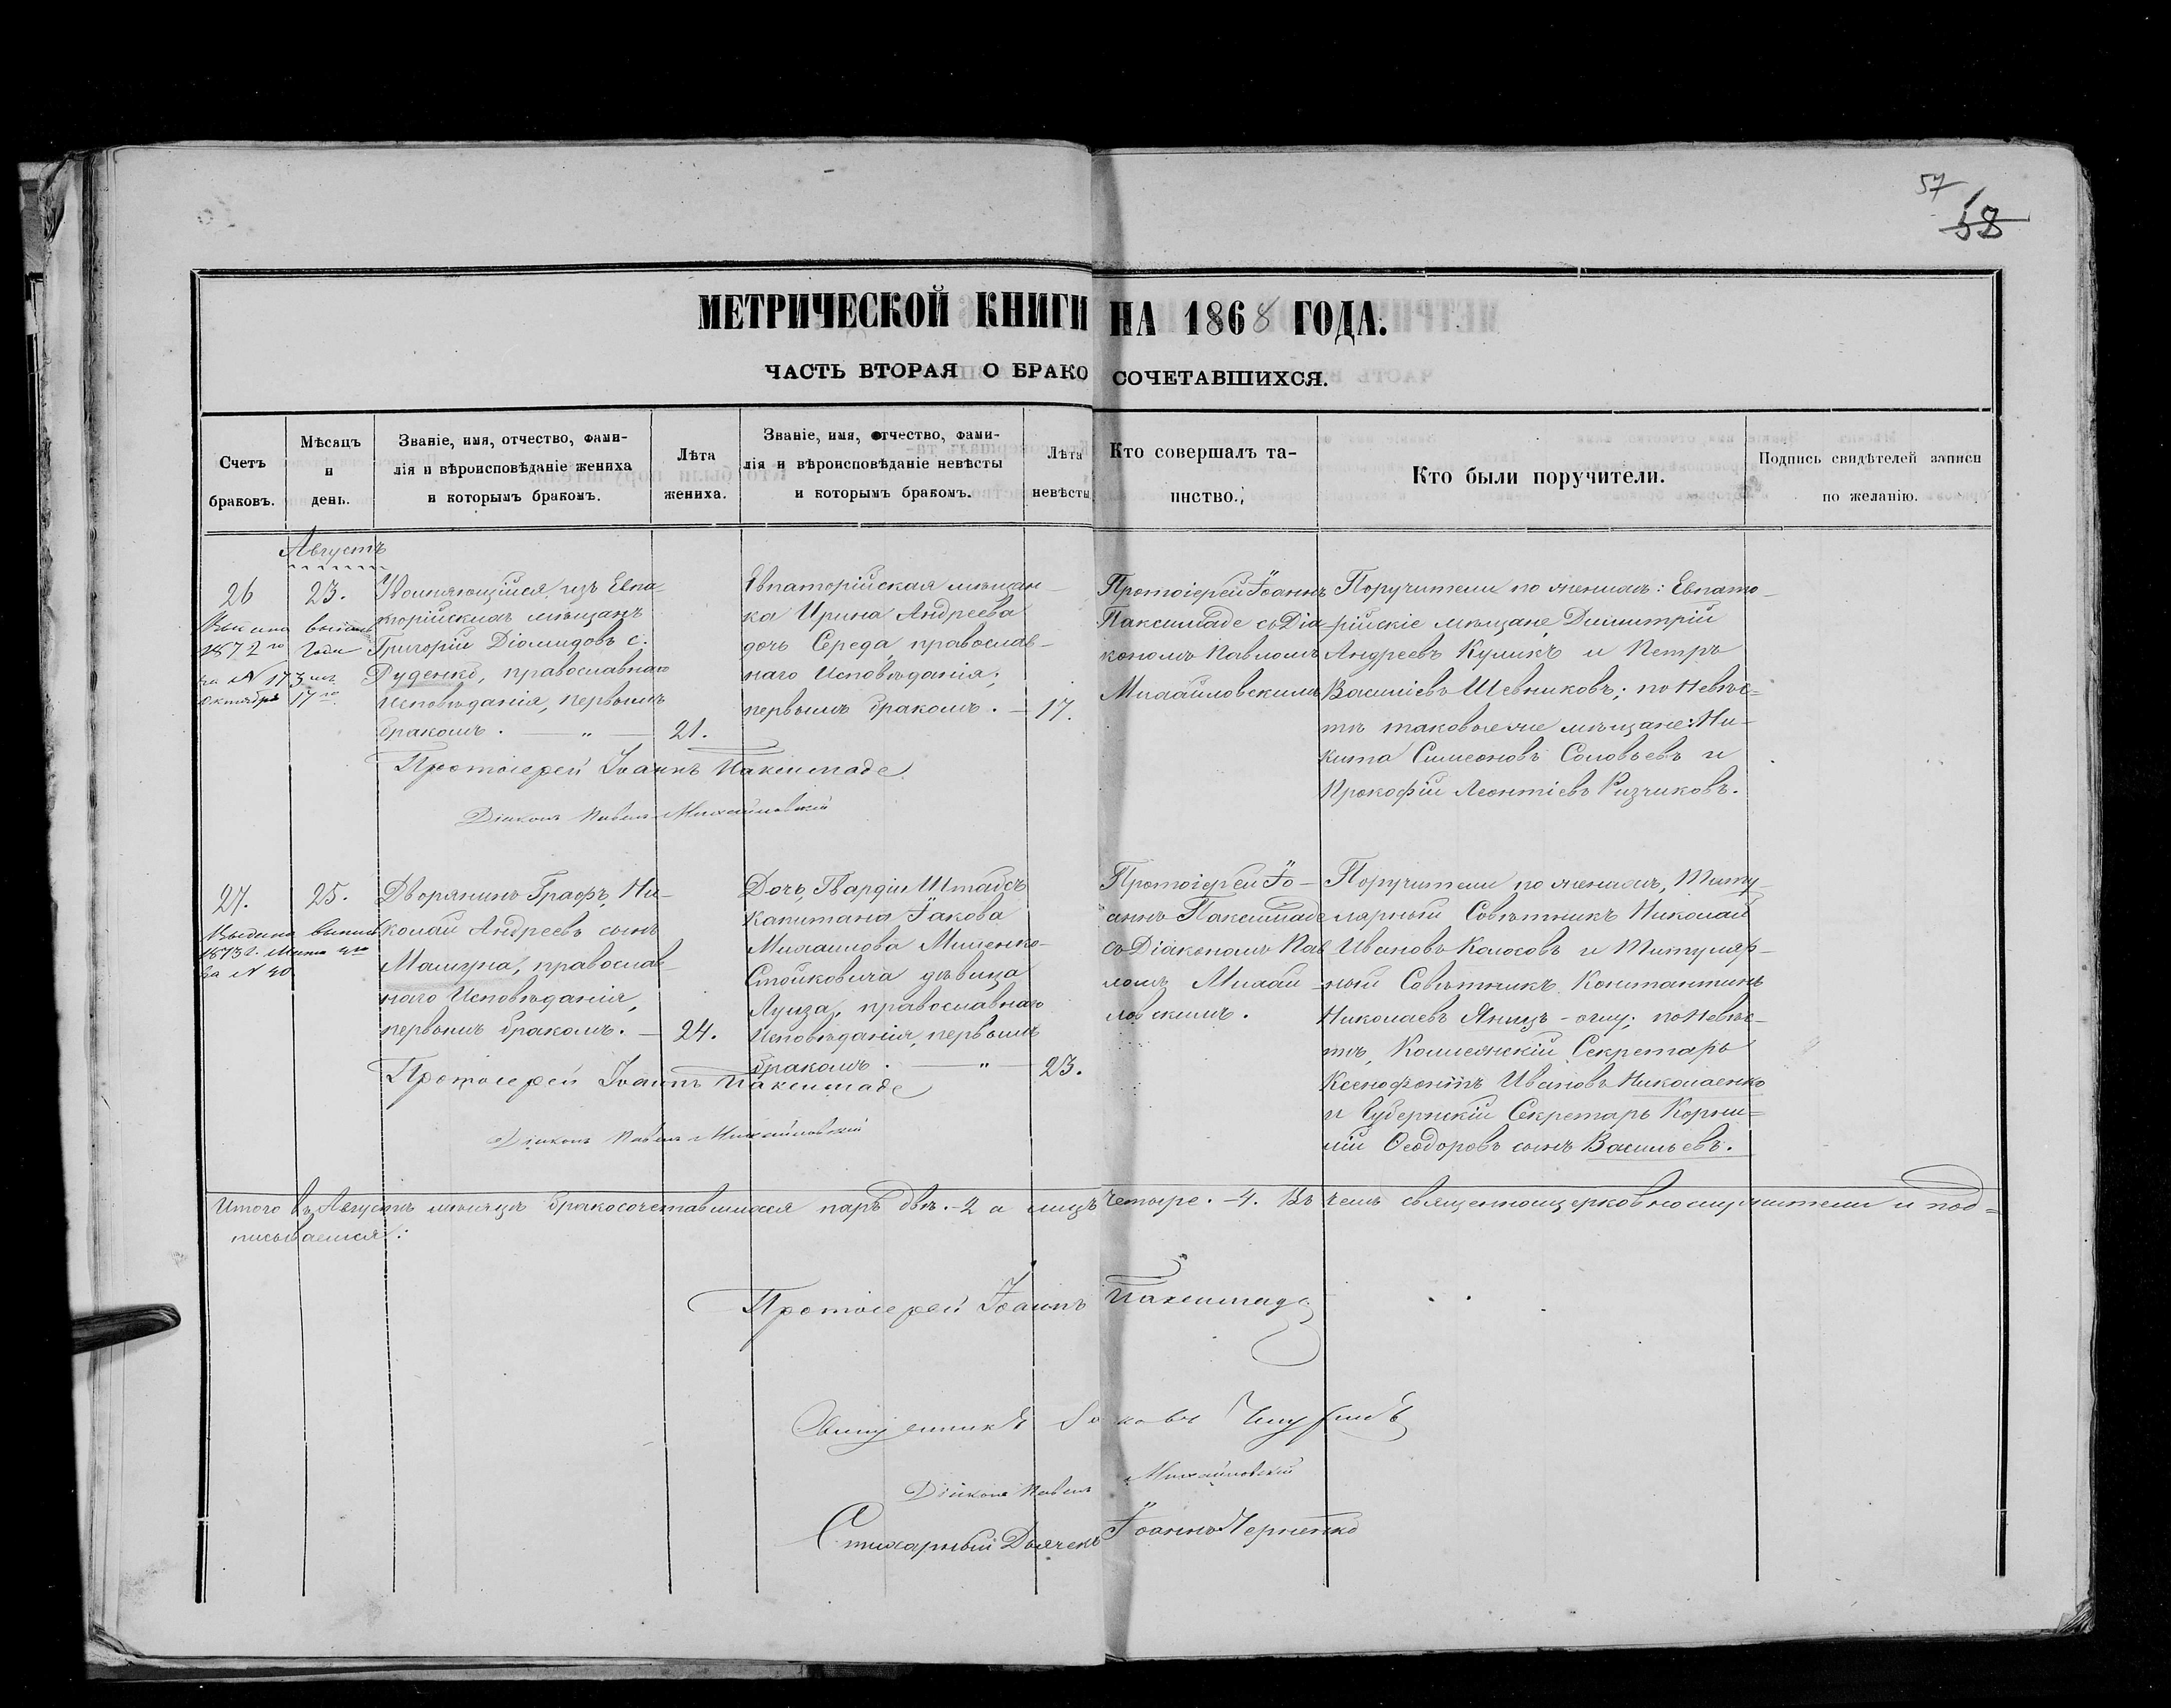 57
58
МЕТРИЧЕСКОЙ КНИГИ НА 1868 ГОДА.
ЧАСТЬ ВТОРАЯ О БРАКОСОЧЕТАВШИХСЯ.
Счетъ
браковъ.
Мѣсяцъ
и
день.
Званіе, имя, отчество, фами-
лія и вѣроисповѣданіе жениха
и которымъ бракомъ.
Лѣта
жениха.
Званіе, имя, отчество, фами-
лія и вѣроисповѣданіе невѣсты
и которымъ бракомъ.
Лѣта
невѣсты
Кто совершалъ та-
инство.
Кто были поручители.
Подпись свидѣтелей записи
по желанію.
Августъ
26
23.
1872 го Года
за № 173 мъ
Октября 17 го
изъ Евпа-
торійскихъ мѣщанъ
Григорій Діомидовъ с.
Руденко, православнаго
Исповѣданія, первымъ
бракомъ. — „ — 21.
Евпаторійская мѣщан-
ка Ирина Андреева
дочь Середа православ-
наго Исповѣданія;
первымъ бракомъ. — 17.
Протоіерей Іоаннъ
Паксимаде съ Діа-
кономъ Павломъ
Михайловскимъ
Поручители по женихѣ: Евпато-
рійскіе мѣщане Димитрій
Андреевъ Куликъ и Петръ
Василіевъ Шевниковъ; по Невѣс-
тѣ таковые же мѣщане: Ни-
кита Симеоновъ Соловьевъ и
Прокофій Леонтіевъ Ризчиковъ.
Протоіерей Іоаннъ Паксимаде
Діаконъ Павелъ Михайловскій
27.
25.
Выдана выпись
1873 г. Марта
за № 40
Дворянинъ Графъ, Ни-
колай Андреевъ сынъ
Мамуна, православ-
наго Исповѣданія,
первымъ бракомъ. — 24.
Дочь Гвардіи Штабсъ
Капитана Іакова
Михаилова Мименко-
Стойковича дѣвица
Луиза, православнаго
Исповѣданія, первымъ
бракомъ. — „ — 23.
Протоіерей Іо-
аннъ Паксимаде
съ Діакономъ Пав-
ломъ Михай-
ловскимъ.
Поручители по женихѣ, Титу-
лярный Совѣтникъ Николай
Ивановъ Колосовъ и Титуляр-
ный Совѣтникъ Константинъ
Николаевъ по Невѣс-
тѣ, Коллежскій Секретарь
Ксенофонтъ Ивановъ Николаенко
и Губернскій Секретарь Корни-
лій Ѳеодоровъ сынъ Васильевъ.
Протоіерей Іоаннъ Паксимаде
Діаконъ Павелъ Михайловскій
Итого въ Августѣ мѣсяцѣ бракосочетавшихся паръ двѣ. - 2 а лицъ четыре. - 4. Въ чемъ священноцерковнослужители и под-
писываемся:
Протоіерей Іоаннъ Паксимаде
Священникъ Іаковъ
Діаконъ Павелъ Михайловскій
Стихарный Дьячекъ Іоаннъ Черненко